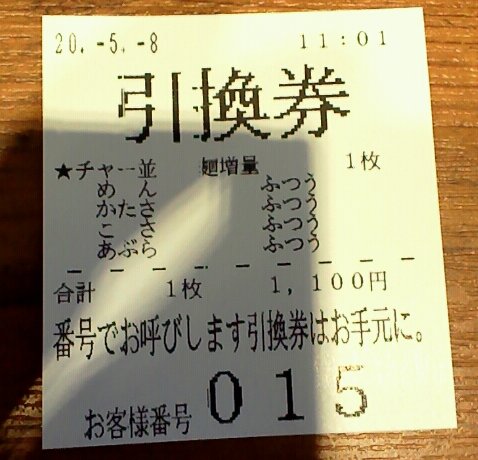 20.-5.-8 11:01
引換券
★チャー並 麺増量 1枚
めん ふつう
かたさ ふつう
こさ ふつう
あぶら ふつう
合計 1枚 1,100円
番号でお呼びします引換券はお手元に。
お客様番号 015